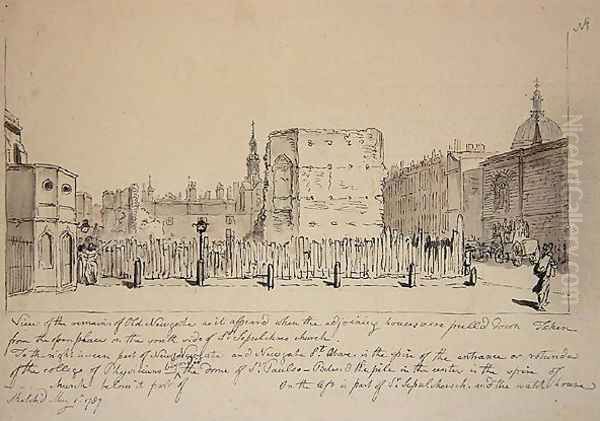 View of the remains of Old Newgate as it appeared when the adjoining houses were pulled down Taken
from the open space on the south side of St Sepulchres church.
To the right is seen part of Newgate and Newgate St. Above is the spire of the entrance or rotunda
of the college of Physicians and the dome of St Pauls - Behind the pile in the center is the spire of
church below it part of On the left is part of St Sepulchres ch. and the watch house
Sketch'd May 1st 1789
NiceArtGallery.com